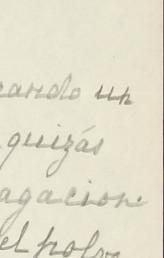 rando un
quizás
agacion
el polvo